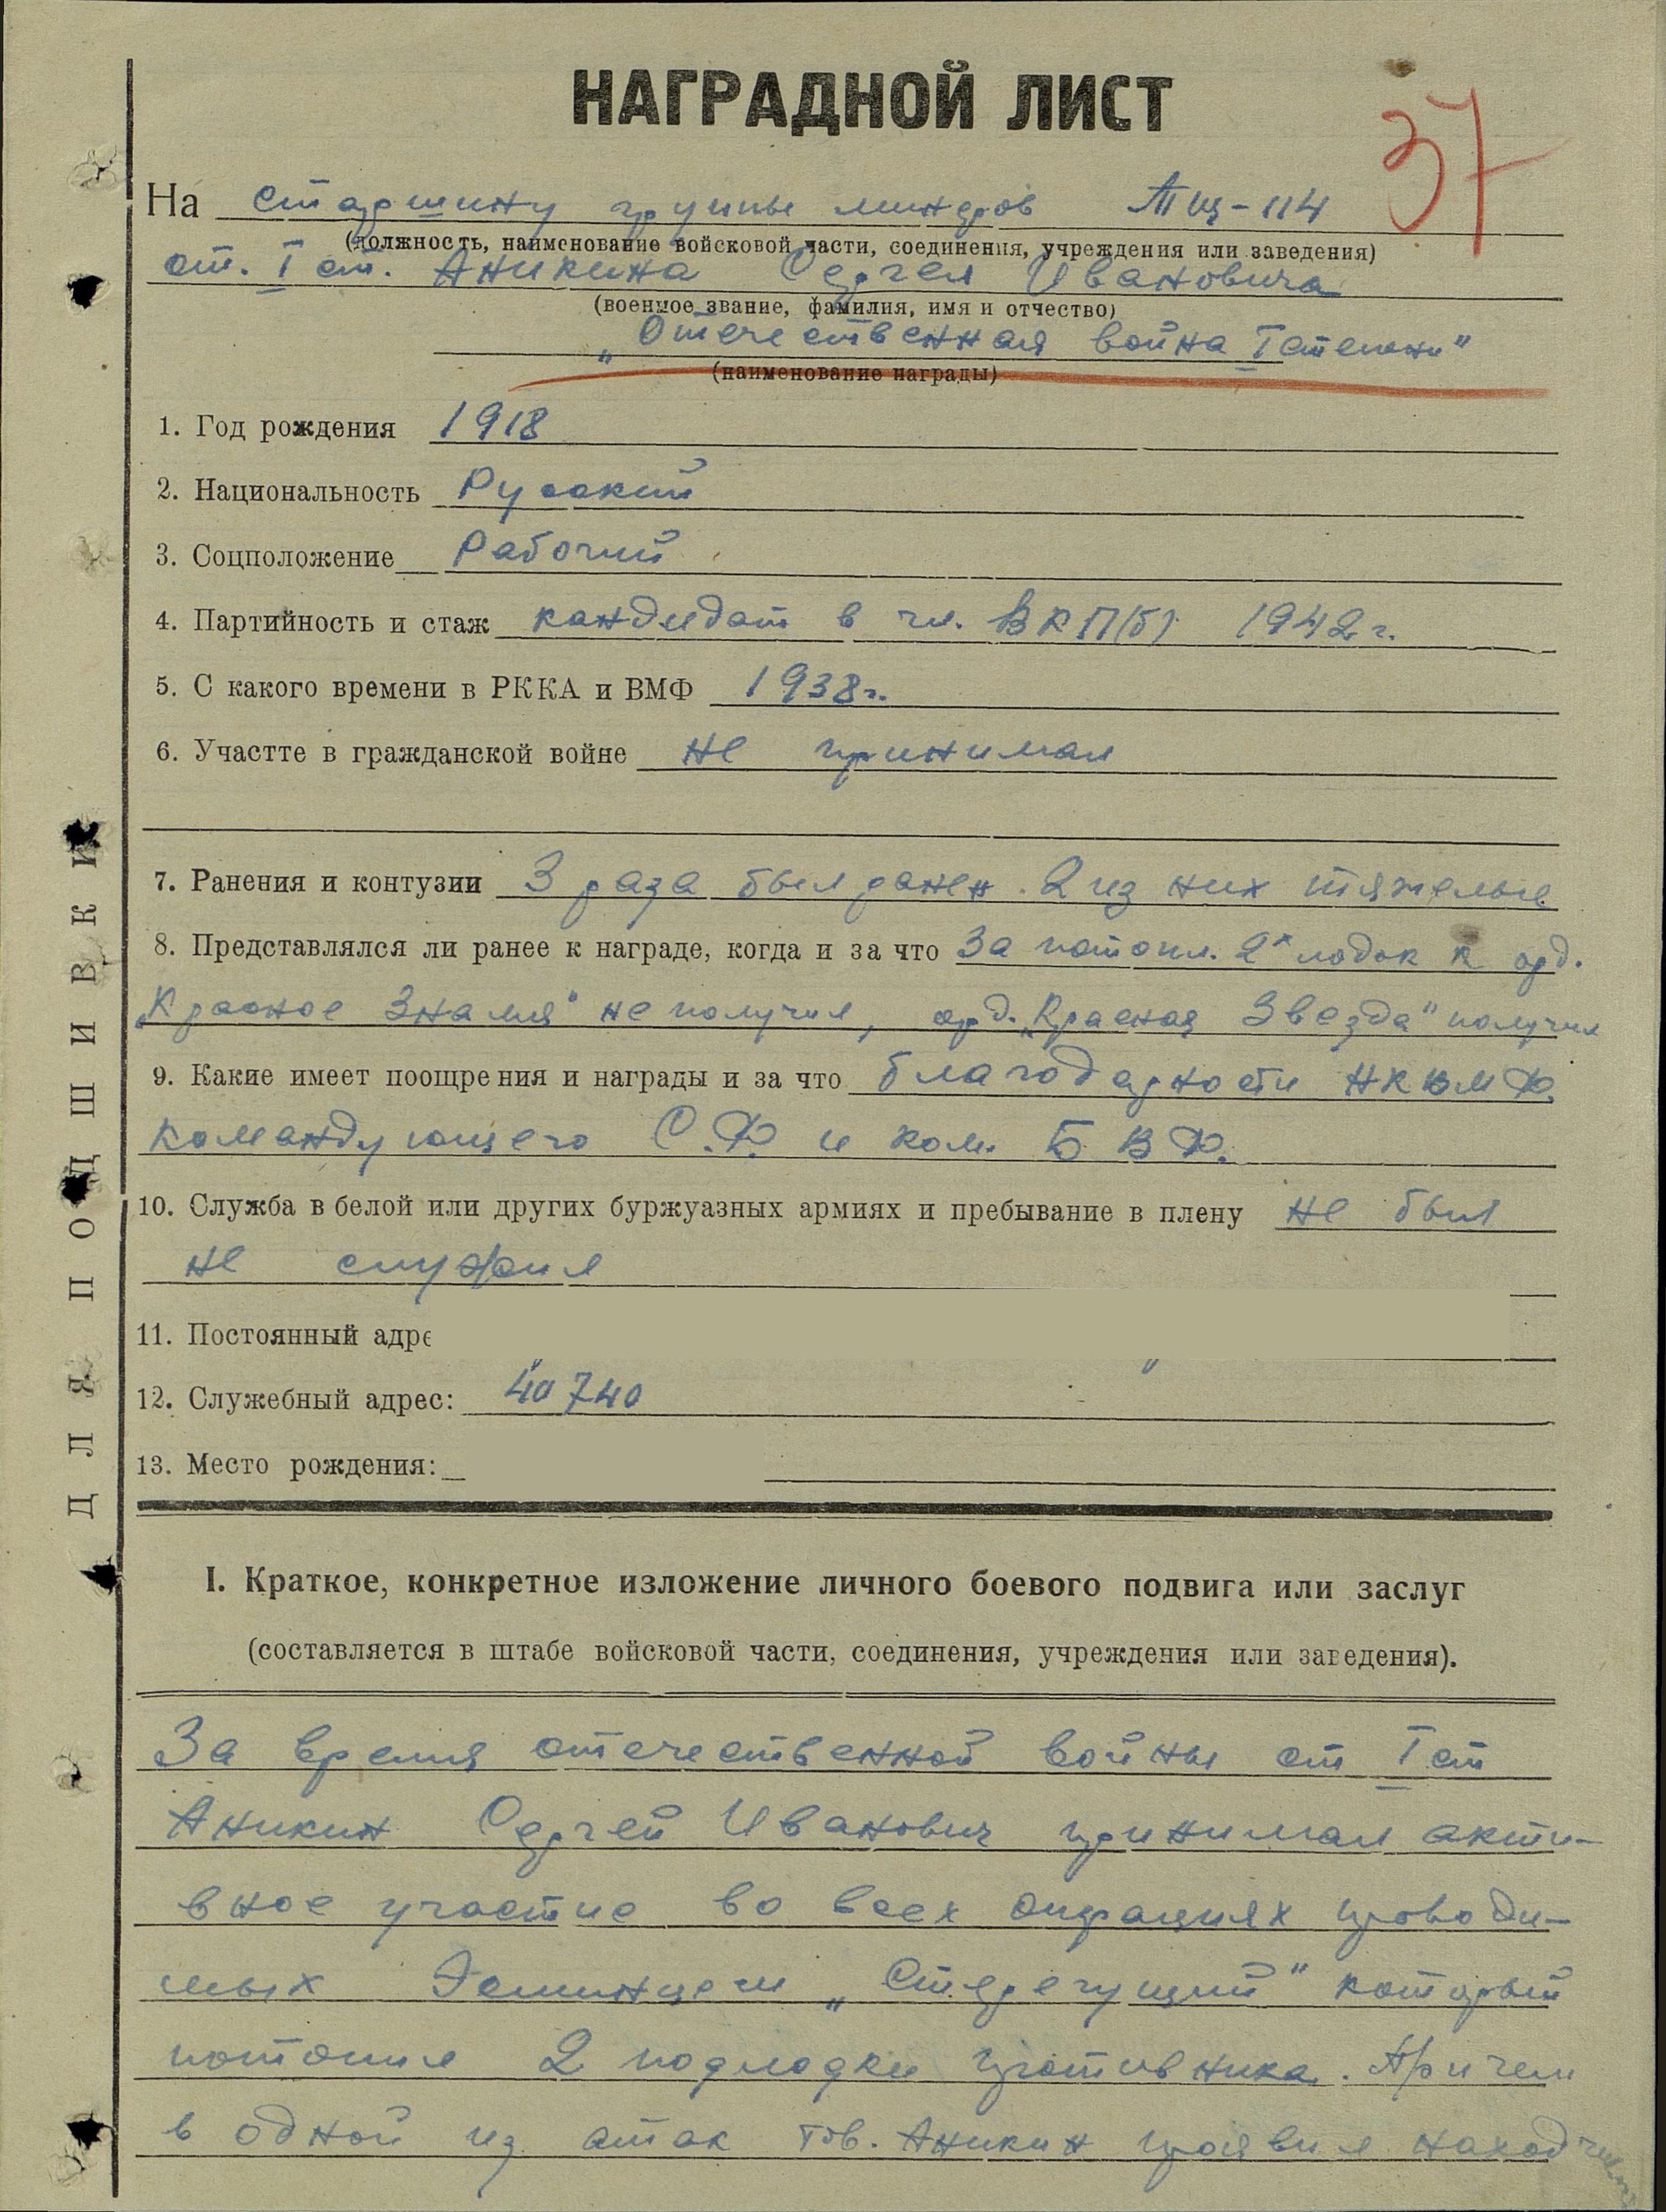 НАГРАДНОЙ ЛИСТ
37
На старшину группы минеров ТЩ-114
(должность, наименование войсковой части, соединения, учреждения или заведения)
ст. I ст. Аникина Сергея Ивановича
(военное звание, фамилия, имя и отчество)
„Отечественная война I степени"
(наименование награды)
1. Год рождения 1918
2. Национальность Русский
3. Соцположение Рабочий
4. Партийность и стаж кандидат в чл. ВКП(б) 1942 г.
5. С какого времени в РККА и ВМФ 1938 г.
6. Участте в гражданской войне не принимал
7. Ранения и контузии 3 раза был ранен. 2 из них тяжелые
8. Представлялся ли ранее к награде, когда и за что За потопл. 2х лодок к орд.
„Красное Знамя" не получил, орд. „Красная Звезда" получил
9. Какие имеет поощрения и награды и за что благодарности НКВМФ.
командующего С.Ф. и ком. БВФ.
10. Служба в белой или других буржуазных армиях и пребывание в плену не был
не служил
11. Постоянный адре
12. Служебный адрес: 40740
13. Место рождения:
I. Краткое, конкретное изложение личного боевого подвига или заслуг
(составляется в штабе войсковой части, соединения, учреждения или заведения).
За время отечественной войны ст I ст
Аникин Сергей Иванович принимал акти-
вное участие во всех операциях проводи-
мых Эсминцем „Стерегущий" который
потопил 2 подлодки противника. Причем
в одной из атак тов. Аникин проявил
ДЛЯ ПОДШИВКИ